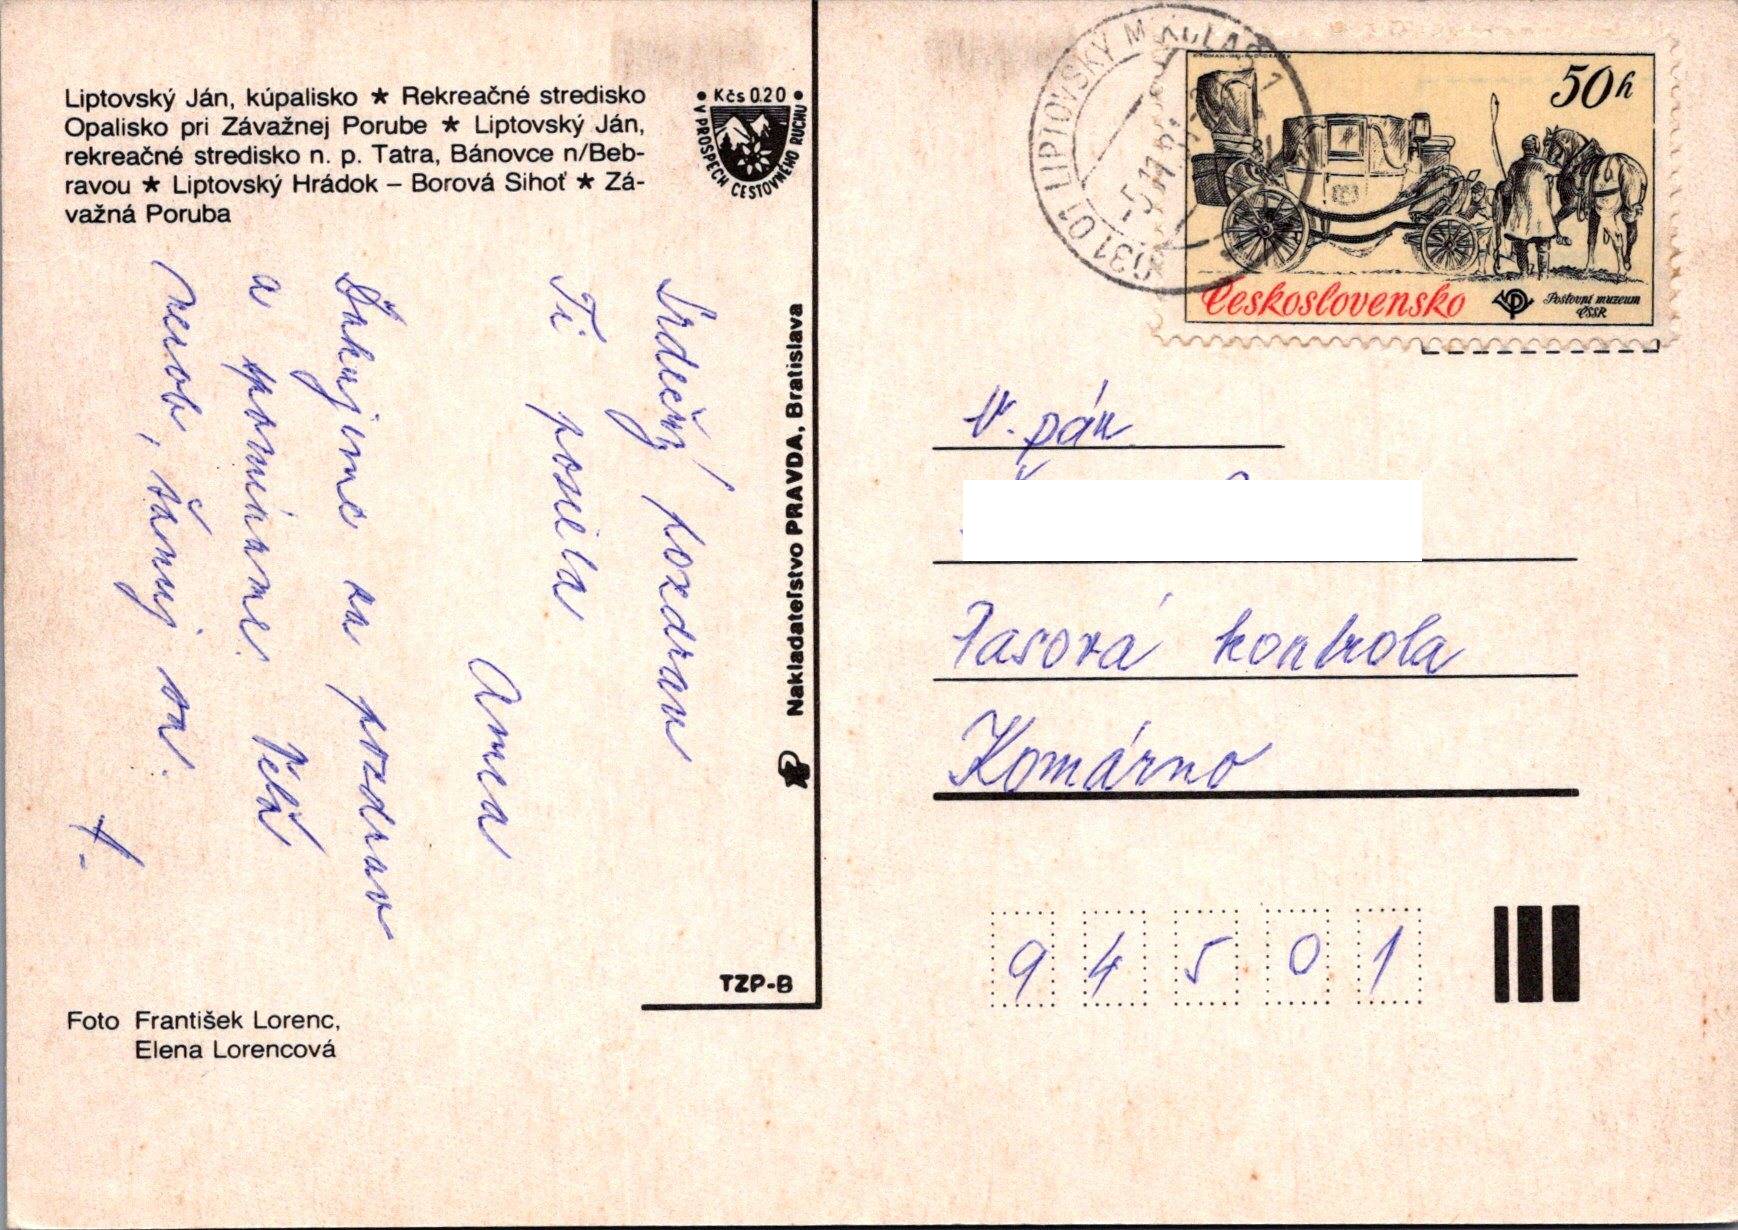 Liptovský Ján, kúpalisko ★ Rekreačné stredisko
Opalisko pri Závažnej Porube ★ Liptovský Ján,
rekreačné stredisko n. p. Tatra, Bánovce n/Beb-
ravou ★ Liptovský Hrádok – Borová Sihoť ★ Zá-
važná Poruba
• Kčs 0.20 •
V PROSPECH CESTOVNÉHO RUCHU
Srdečný pozdrav
Ti posiela
Anna
Ďakujeme za pozdrav
a spomíname. Veľa
nerob, šanuj sa.
A.
Nakladateľstvo PRAVDA, Bratislava
TZP-B
Foto František Lorenc,
Elena Lorencová
031 01 LIPTOVSKÝ MIKULÁŠ 1
50h
Československo
Poštovní muzeum
ČSSR
V. pán
Pasová kontrola
Komárno
94501